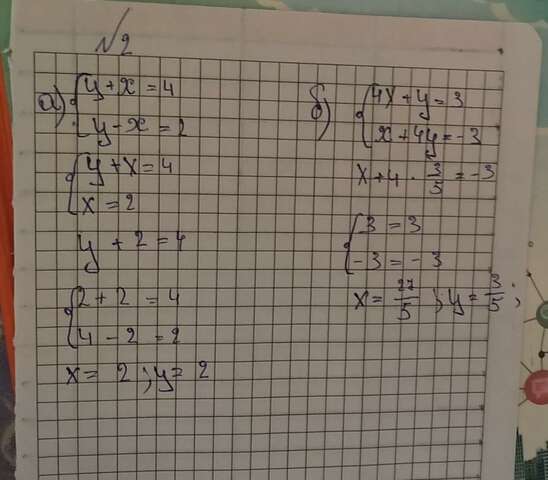 №2
а) { y + x = 4
y - x = 2
{ y + x = 4
x = 2
y + 2 = 4
{ 2 + 2 = 4
4 - 2 = 2
x = 2 ; y = 2
б) { 4x + y = 3
x + 4y = -3
x + 4 · 3/5 = -3
{ 3 = 3
-3 = -3
x = 27/5 ; y = 3/5 ;